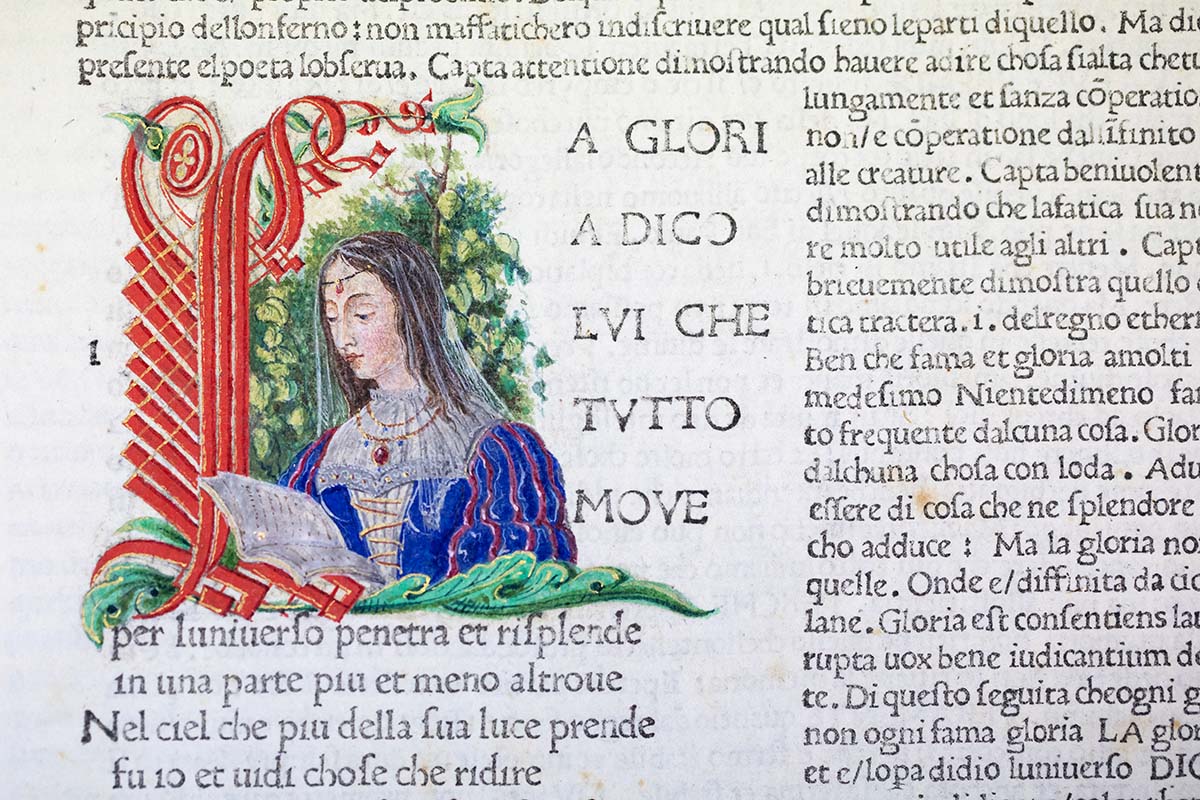 pricipio dellonferno : non maffatichero indiſcriuere qual ſieno leparti diquello . Ma di
preſente elpoeta lobſerua . Capta attentione dimoſtrando hauere adire choſa ſialta chetu
LA GLORI
A DICO
LVI CHE
TVTTO
MOVE
1
per luniuerſo penetra et riſplende
in una parte piu et meno altroue
Nel ciel che piu della ſua luce prende
fu io et uidi choſe che ridire
lungamente et ſanza cōperatio
non/e cōperatione dallĩfinito
alle creature . Capta beniuolent
dimoſtrando che lafatica ſua n
re molto utile agli altri . Capt
brieuemente dimoſtra quello
tica tractera . 1 . delregno etheri
Ben che fama et gloria amolti
medeſimo Nientedimeno
to frequente dalcuna coſa . Glor
dalchuna choſa con loda . Adu
eſſere di coſa che ne ſplendore
cho adduce : Ma la gloria no
quelle . Onde e/diffinita da cic
lane . Gloria eſt conſentiens lau
rupta uox bene iudicantium de
te . Di queſto ſeguita cheogni g
non ogni fama gloria LA glor
et e/lopa didio luniuerſo DIC